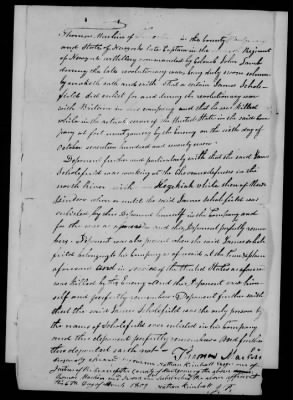 Thomas Machin of in the County
and State of Newyork late Captain in the Regiment
of Newyork artillery commanded by Colonel John Lamb
during the late revolutionary war, being duly sworn solemn
ly maketh oath and saith That a certain James Schol-
field did enlist for and during the revolutionary war
with Britain in his company and that he was killed
while in the actual service of the United States in the said Com
pany at fort montgomery by the Enemy on the sixth day of
October seventeen hundred and seventy seven.
Deponent further and particularly saith that the said James
Scholefield was working at the Chevauxdefrieses in the
north River with Kosciusko while then of
Windsor when & where the said James Scholefield was
enlisted by this Deponent himself in the Company and
for the war as aforesaid and this Deponent perfectly remem
bers. Deponent was also present when the said James Schole
field belonging to his Company as aforesaid at the time & place
aforesaid and in service of the United States as aforesaid
was killed by the Enemy and this Deponent saw him
self and perfectly remembers & Deponent further saith
that the said James Scholefield was the only person by
the name of Scholefield ever enlisted in his Company
and this deponent perfectly remembers and further
this deponent saith not
Thomas Machin
personally appeared before me Nathan Kimball esqr one of
Justices of the Peace for the County of Montgomery the above
Thomas Machin and is sworn and subscribed the above affidavit
this 6th Day of March 1809 Nathan Kimball J. P.